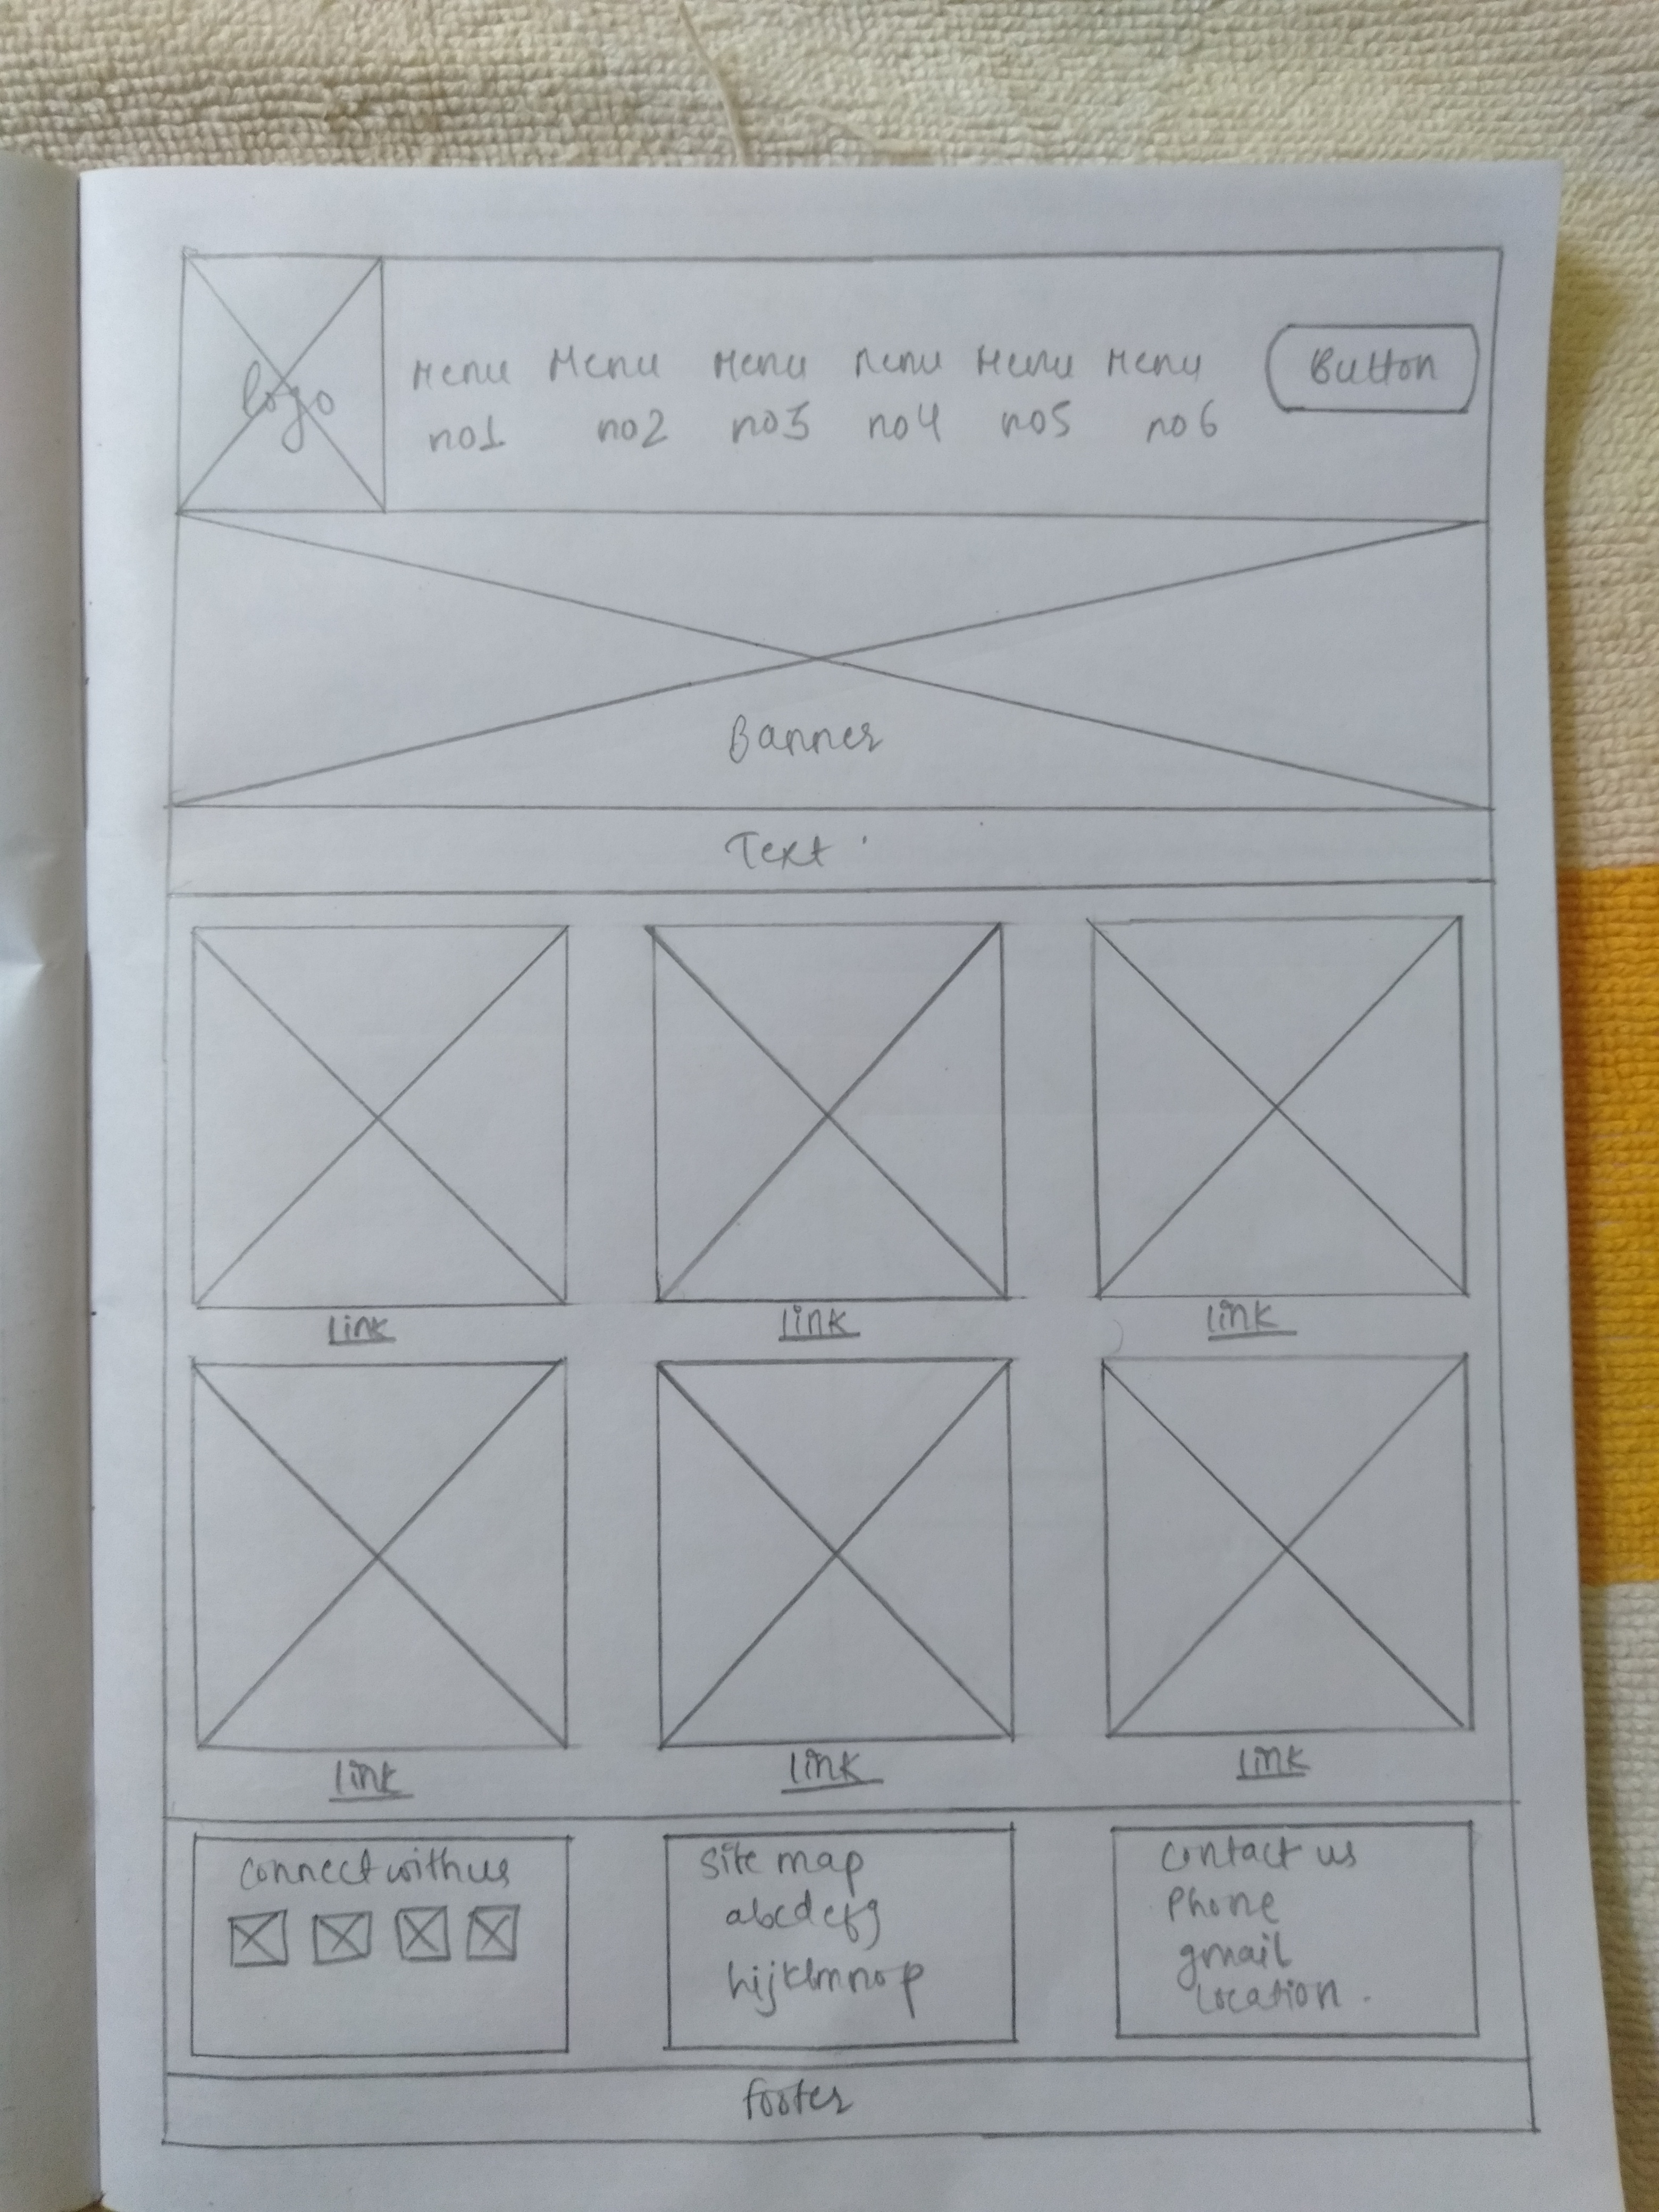 logo
Menu Menu Menu Menu Menu Menu
no1 no2 no3 no4 no5 no6
Button
Banner
Text
link link link
link link link
Connect with us
Site map
abcdefg
hijklmnop
Contact us
Phone
gmail
Location.
footer